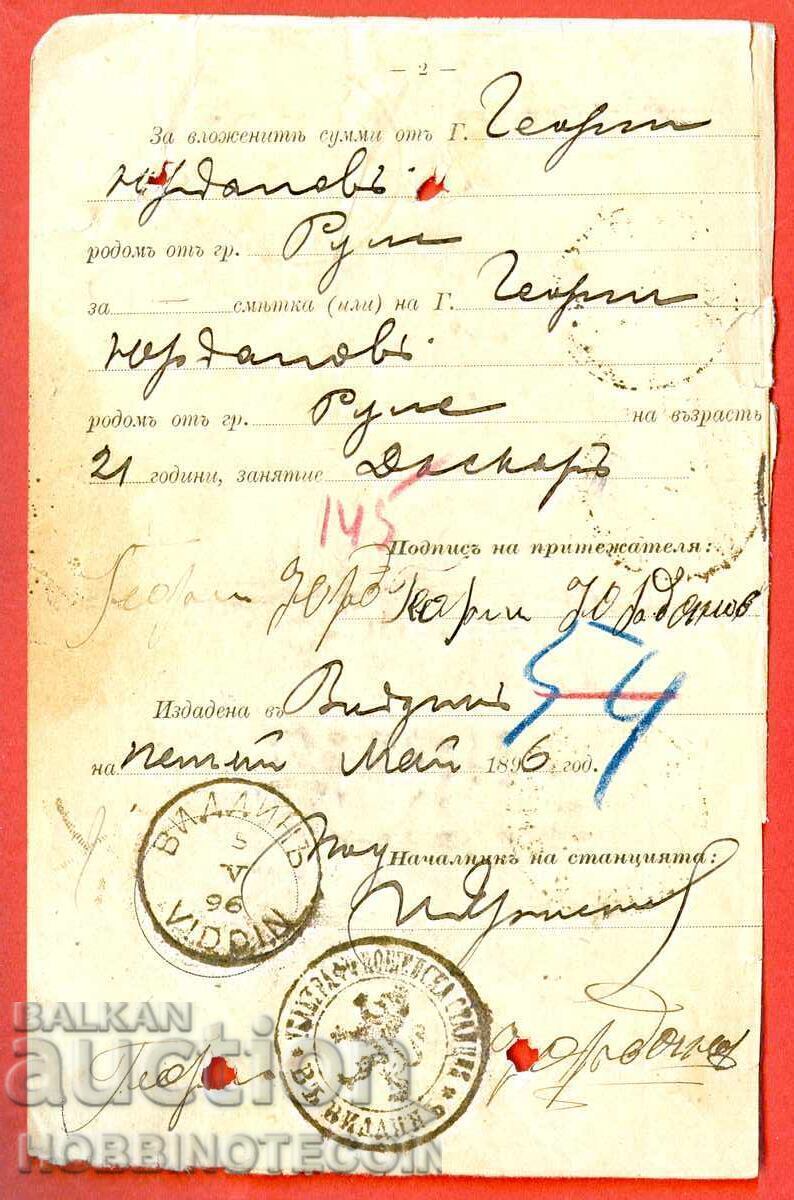 — 2 —
За вложенитѣ сумми отъ Г. Георги
Юрдановъ
родомъ отъ гр. Русе
за — смѣтка (или) на Г. Георги
Юрдановъ
родомъ отъ гр. Русе на възрасть
21 години, занятие
145
Подписъ на притежателя:
Георги Юрд Георги Юрданов
54
Издадена въ Видинъ
на петий Май 1896 год.
ВИДДИНЪ
5
V
96
VIDDIN
Началникъ на станцията:
ТЕЛЕГРАФО ПОЩЕНСКА СТАНЦИЯ
ВЪ ВИДДИНЪ
Георги Юрданов
BALKAN
auction
HOBBINOTECOIN